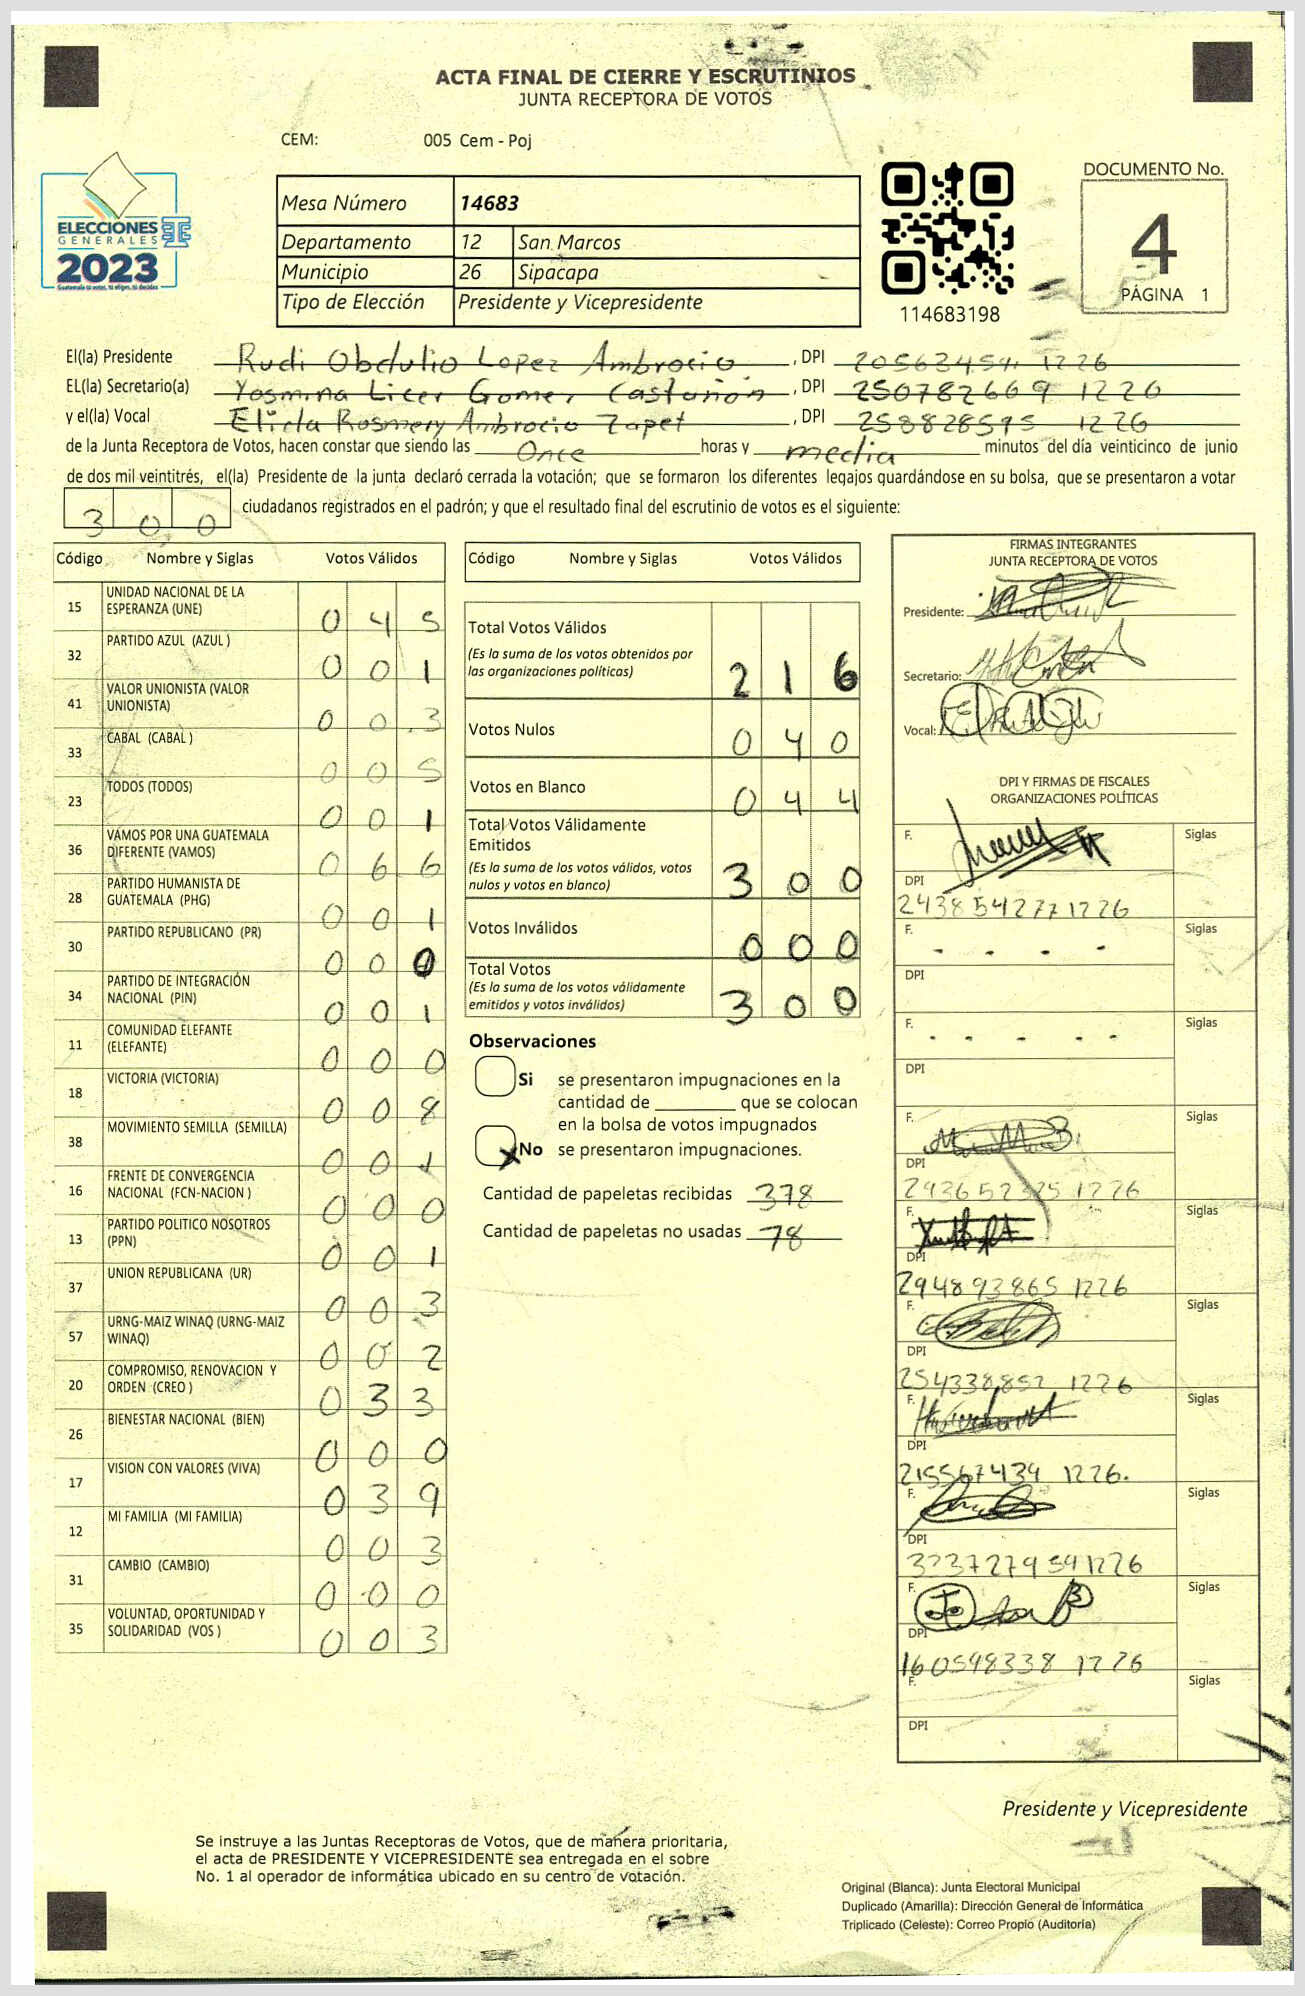 ACTA FINAL DE CIERRE Y ESCRUTINIOS
JUNTA RECEPTORA DE VOTOS
CEM: 005 Cem - Poj
ELECCIONES
GENERALES
2023
Guatemala tú votas, tú eliges, tú decides
Mesa Número 14683
Departamento 12 San Marcos
Municipio 26 Sipacapa
Tipo de Elección Presidente y Vicepresidente
114683198
DOCUMENTO No.
4
PÁGINA 1
El(la) Presidente Rudi Obdulio Lopez Ambrocio, DPI 1226
EL(la) Secretario(a) Yosmina Licer Gomez Castañón, DPI 250782669 1226
y el(la) Vocal Elida Rosmery Ambrocio Zapet, DPI 258828595 1226
de la Junta Receptora de Votos, hacen constar que siendo las Once horas y media minutos del día veinticinco de junio
de dos mil veintitrés, el(la) Presidente de la junta declaró cerrada la votación; que se formaron los diferentes legajos guardándose en su bolsa, que se presentaron a votar
300 ciudadanos registrados en el padrón; y que el resultado final del escrutinio de votos es el siguiente:
Código Nombre y Siglas Votos Válidos
15 UNIDAD NACIONAL DE LA ESPERANZA (UNE) 0 4 5
32 PARTIDO AZUL (AZUL ) 0 0 1
41 VALOR UNIONISTA (VALOR UNIONISTA) 0 0 3
33 CABAL (CABAL ) 0 0 5
23 TODOS (TODOS) 0 0 1
36 VAMOS POR UNA GUATEMALA DIFERENTE (VAMOS) 0 6 6
28 PARTIDO HUMANISTA DE GUATEMALA (PHG) 0 0 1
30 PARTIDO REPUBLICANO (PR) 0 0 0
34 PARTIDO DE INTEGRACIÓN NACIONAL (PIN) 0 0 1
11 COMUNIDAD ELEFANTE (ELEFANTE) 0 0 0
18 VICTORIA (VICTORIA) 0 0 8
38 MOVIMIENTO SEMILLA (SEMILLA) 0 0 1
16 FRENTE DE CONVERGENCIA NACIONAL (FCN-NACION ) 0 0 0
13 PARTIDO POLITICO NOSOTROS (PPN) 0 0 1
37 UNION REPUBLICANA (UR) 0 0 3
57 URNG-MAIZ WINAQ (URNG-MAIZ WINAQ) 0 0 2
20 COMPROMISO, RENOVACION Y ORDEN (CREO ) 0 3 3
26 BIENESTAR NACIONAL (BIEN) 0 0 0
17 VISION CON VALORES (VIVA) 0 3 9
12 MI FAMILIA (MI FAMILIA) 0 0 3
31 CAMBIO (CAMBIO) 0 0 0
35 VOLUNTAD, OPORTUNIDAD Y SOLIDARIDAD (VOS ) 0 0 3
Código Nombre y Siglas Votos Válidos
Total Votos Válidos
(Es la suma de los votos obtenidos por
las organizaciones políticas) 2 1 6
Votos Nulos 0 4 0
Votos en Blanco 0 4 4
Total Votos Válidamente
Emitidos
(Es la suma de los votos válidos, votos
nulos y votos en blanco) 3 0 0
Votos Inválidos 0 0 0
Total Votos
(Es la suma de los votos válidamente
emitidos y votos inválidos) 3 0 0
Observaciones
Si se presentaron impugnaciones en la
cantidad de ________ que se colocan
en la bolsa de votos impugnados
X No se presentaron impugnaciones.
Cantidad de papeletas recibidas 378
Cantidad de papeletas no usadas 78
FIRMAS INTEGRANTES
JUNTA RECEPTORA DE VOTOS
Presidente:
Secretario:
Vocal:
DPI Y FIRMAS DE FISCALES
ORGANIZACIONES POLÍTICAS
F. Siglas
DPI
2438542771226
F. Siglas
DPI
F. Siglas
DPI
F. Siglas
DPI
293652325 1226
F. Siglas
DPI
294893865 1226
F. Siglas
DPI
254338852 1226
F. Siglas
DPI
215567439 1226.
F. Siglas
DPI
3237279591226
F. Siglas
DPI
160598338 1226
F. Siglas
DPI
Presidente y Vicepresidente
Se instruye a las Juntas Receptoras de Votos, que de manera prioritaria,
el acta de PRESIDENTE Y VICEPRESIDENTE sea entregada en el sobre
No. 1 al operador de informática ubicado en su centro de votación.
Original (Blanca): Junta Electoral Municipal
Duplicado (Amarilla): Dirección General de Informática
Triplicado (Celeste): Correo Propio (Auditoría)